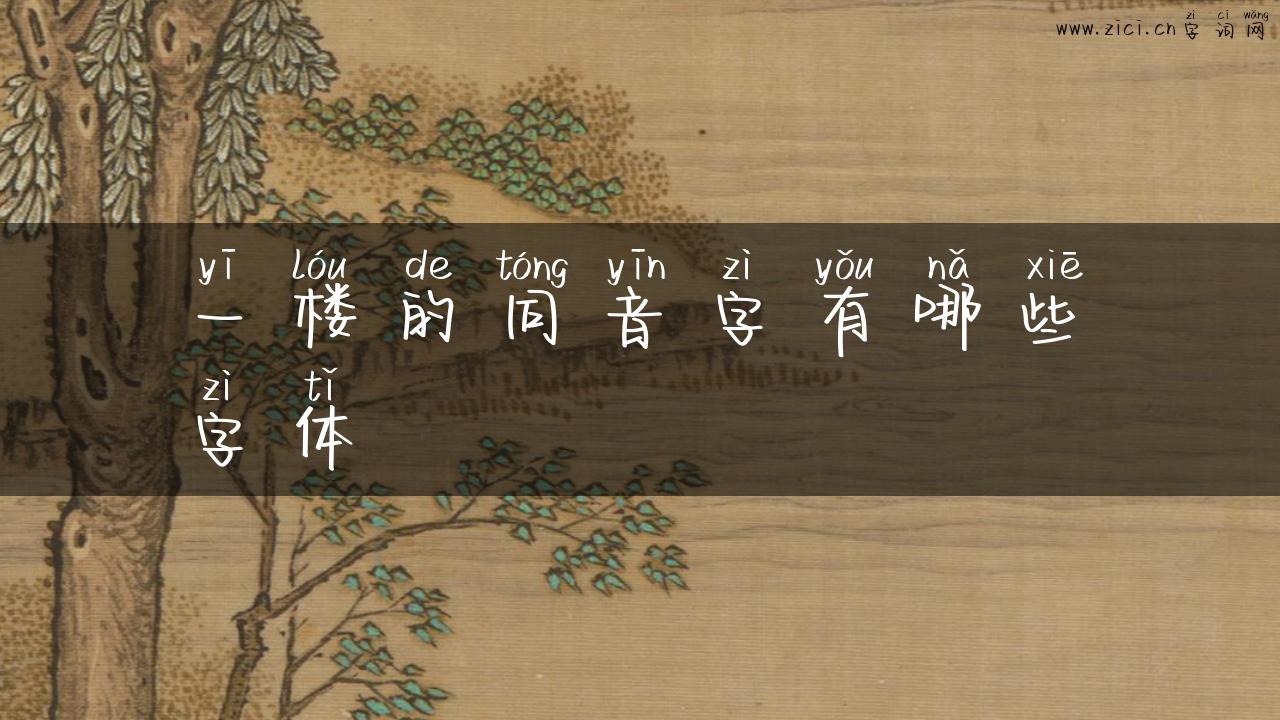 zì cí wǎng
www.zici.cn 字词网
yī lóu de tóng yīn zì yǒu nǎ xiē
一楼的同音字有哪些
zì tǐ
字体